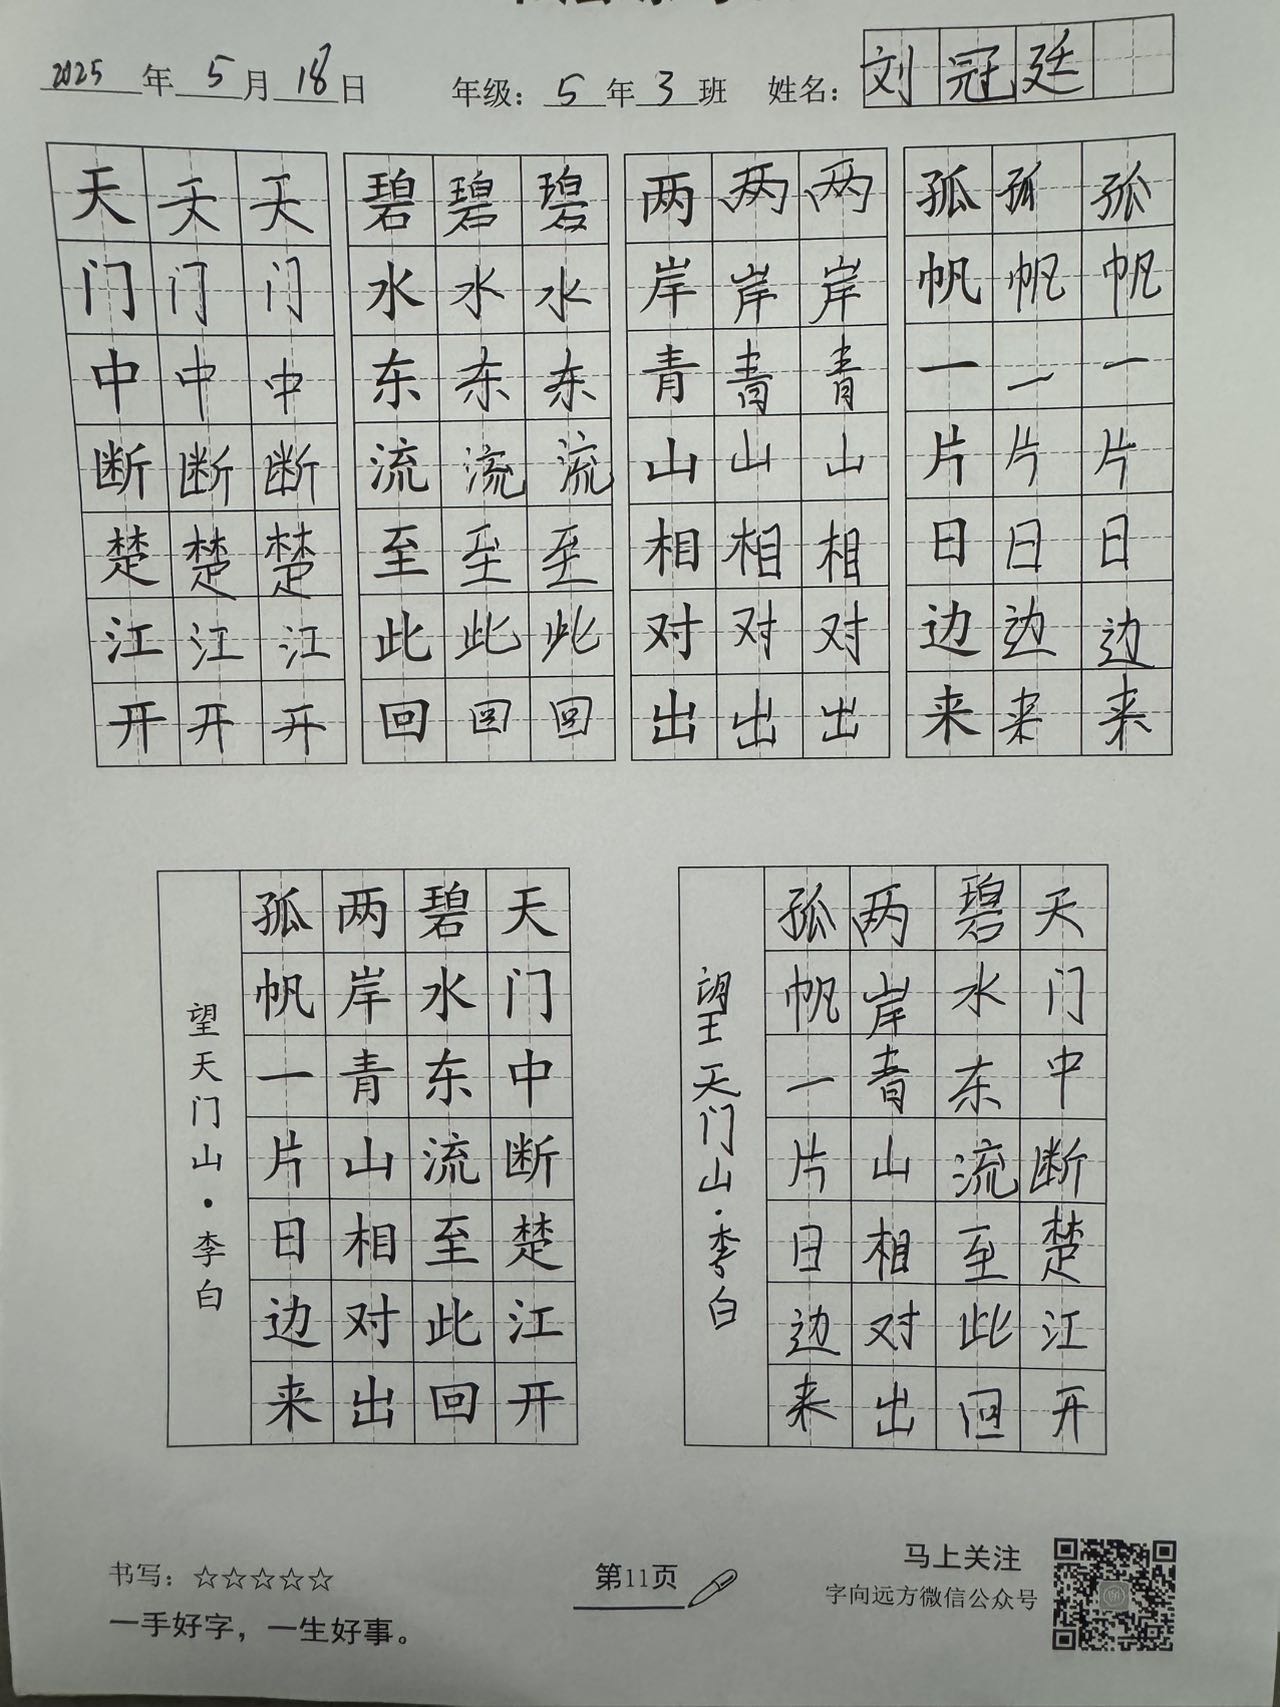 2025年5月18日 年级：5年3班 姓名：刘冠廷
天天天 碧碧碧 两两两 孤孤孤
门门门 水水水 岸岸岸 帆帆帆
中中中 东东东 青青青 一一一
断断断 流流流 山山山 片片片
楚楚楚 至至至 相相相 日日日
江江江 此此此 对对对 边边边
开开开 回回回 出出出 来来来
天门中断楚江开
碧水东流至此回
两岸青山相对出
孤帆一片日边来
望天门山·李白
天门中断楚江开
碧水东流至此回
两岸青山相对出
孤帆一片日边来
望天门山·李白
书写：☆☆☆☆☆
一手好字，一生好事。
第11页
马上关注
字向远方微信公众号